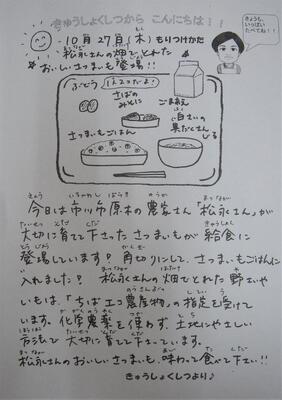 きゅうしょくしつから こんにちは！！
きょうも、
いっぱい
たべてね！！
10月27日(木)もりつけかた
松永さんの畑でとれた
おいしいさつまいも登場!!
ぶどう
1人2コだよ!
さばの
みそに
ごまあえ
さつまいもごはん
白さいの
具だくさん
しる
今日は市川市原木の農家さん「松永さん」が
大切に育てて下さったさつまいもが給食に
登場しています? 角切りにして、さつまいもごはんに
入れました? 松永さんの畑でとれた野さいや
いもは、「ちばエコ農産物」の指定を受けて
います。化学農薬を使わず、土地にやさしい
方法で大切に育てて下さっています。
松永さんのおいしいさつまいも、味わって食べて下さい!!
きゅうしょくしつより♪